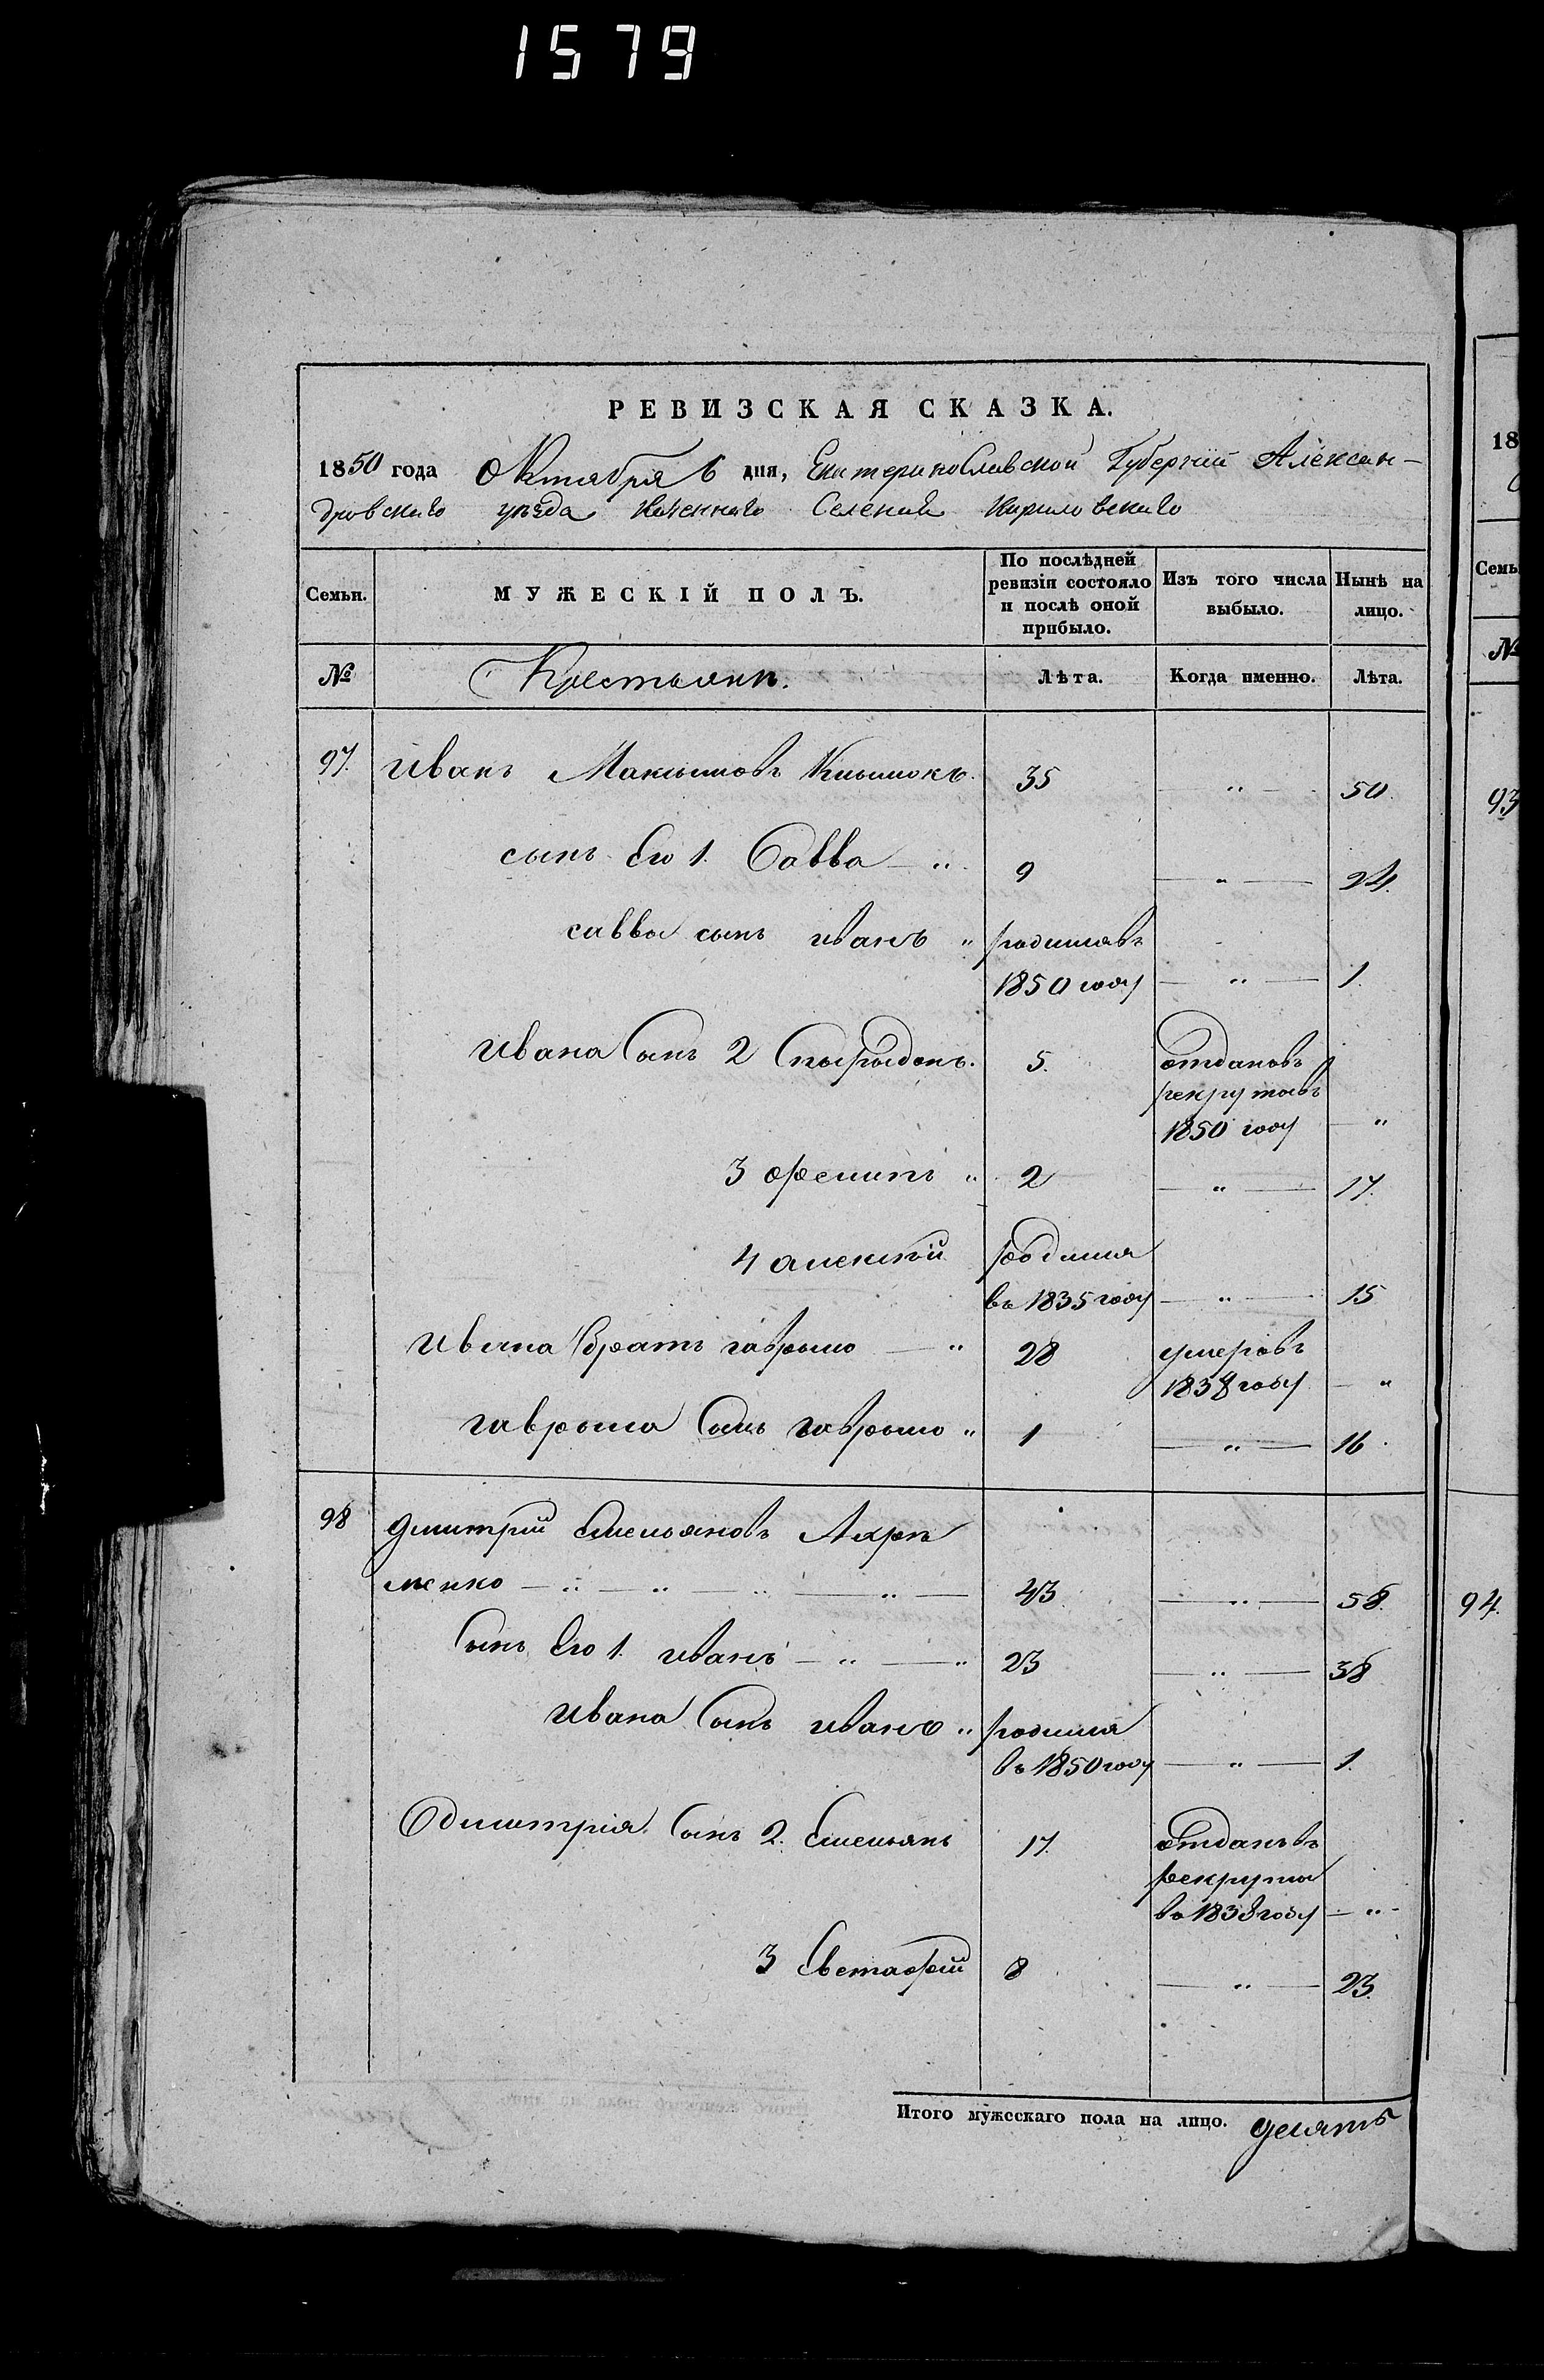 1579
РЕВИЗСКАЯ СКАЗКА.
1850 года Октября 6 дня, Екатеринославской Губерніи Алексан-
дровскаго уѣзда Казеннаго Селенія Кириловскаго
Семьи.
МУЖЕСКІЙ ПОЛЪ.
По послѣдней ревизіи состояло и послѣ оной прибыло.
Изъ того числа выбыло.
Нынѣ на лицо.
№ Крестьяни. Лѣта. Когда именно. Лѣта.
97. Иванъ Максимовъ 35 " 50.
сынъ Его 1. Савва " 9 " 24.
савва сынъ иванъ " родилавъ
1850 году " 1.
Ивана Сынъ 2 Спырыдонъ. 5. отдановъ
рекрутавъ
1850 году "
3 " 2 " 17.
4 алексѣй родилия
въ 1835 году " 15
Ивана Братъ гаврыло " 28 умеровъ
1838 году "
гаврыла Сынъ гаврыло " 1 " 16.
98 Дмитрій Емельяновъ Ахре
менко " " " " 43 " 58.
Сынъ Его 1. иванъ " " 23 " 38
Ивана Сынъ иванъ " родилия
въ 1850 году " 1.
Дмитрія Сынъ 2. Емельянъ 17. отданъвъ
рекруты
въ 1838 году "
3 Евстафій 8 " 23.
Итого мужескаго пола на лицо. десять
18
Семь
№
93
94.